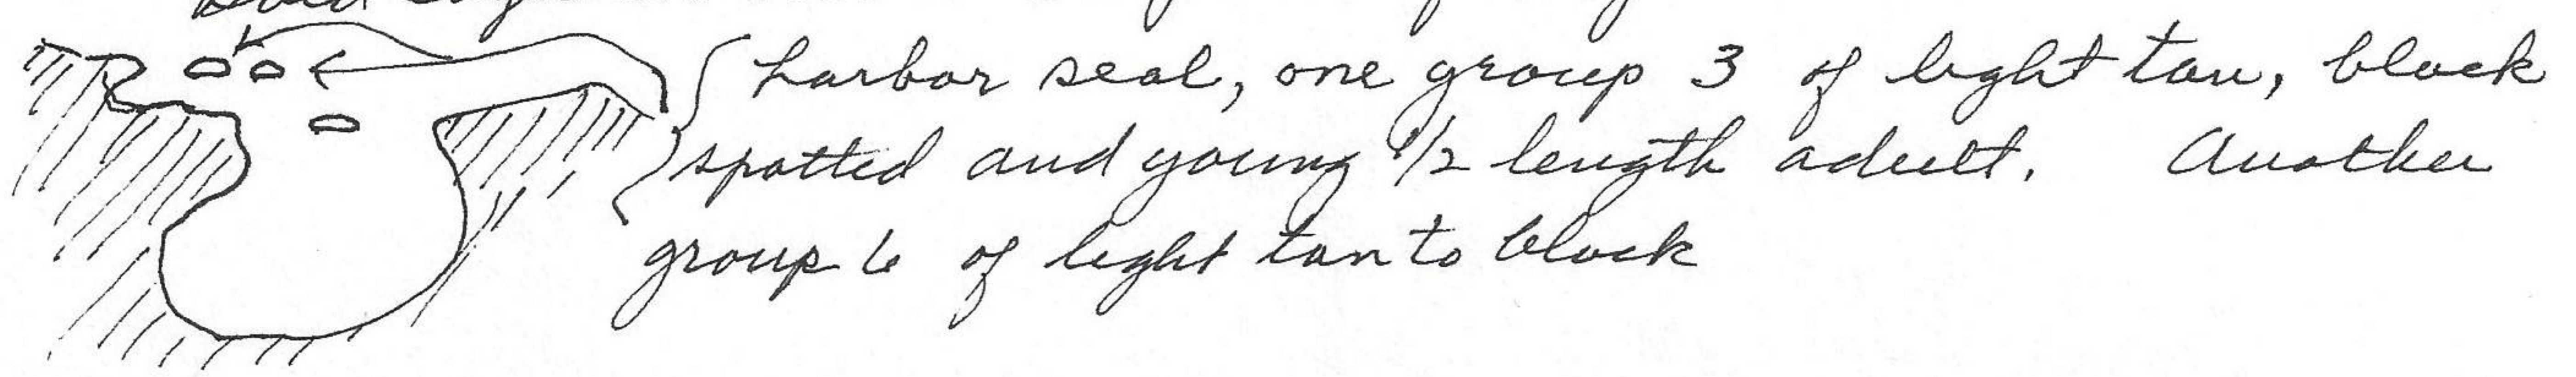 harbor seal, one group 3 of light tan, black
spotted and young 1/2 length adult. Another
group 6 of light tan to black